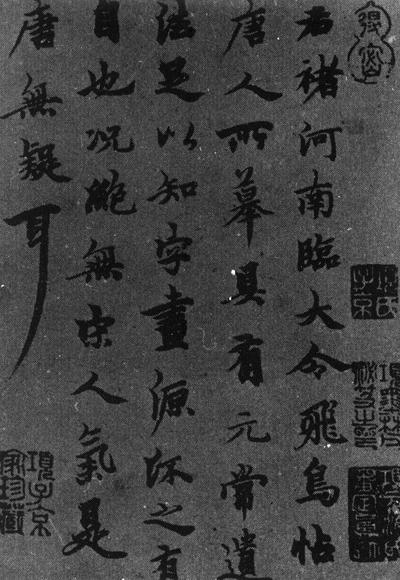 右褚河南臨大令飛鳥帖
唐人所摹具有元常遺
法足以知字畫源流之有
自也況絶無宋人氣是
唐無疑耳
項子京
家珍藏